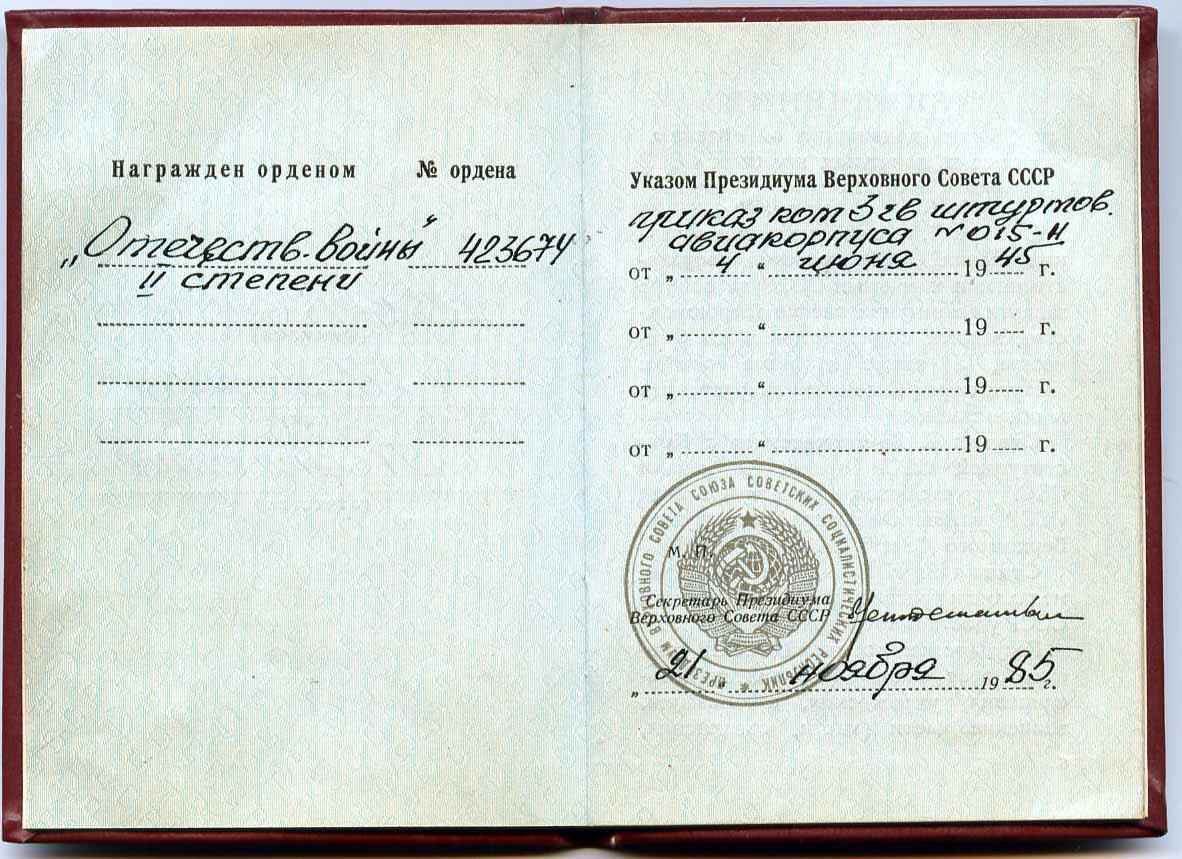 Награжден орденом № ордена
„Отечеств. войны“ 423674
II степени
Указом Президиума Верховного Совета СССР
приказ ком 3 гв штурмов.
авиакорпуса № 015-н
от „ 4 “ июня 19 45 г.
от „ “ 19 г.
от „ “ 19 г.
от „ “ 19 г.
ПРЕЗИДИУМ ВЕРХОВНОГО СОВЕТА СОЮЗА СОВЕТСКИХ СОЦИАЛИСТИЧЕСКИХ РЕСПУБЛИК
М. П.
Секретарь Президиума
Верховного Совета СССР
„ 21 “ ноября 19 85 г.